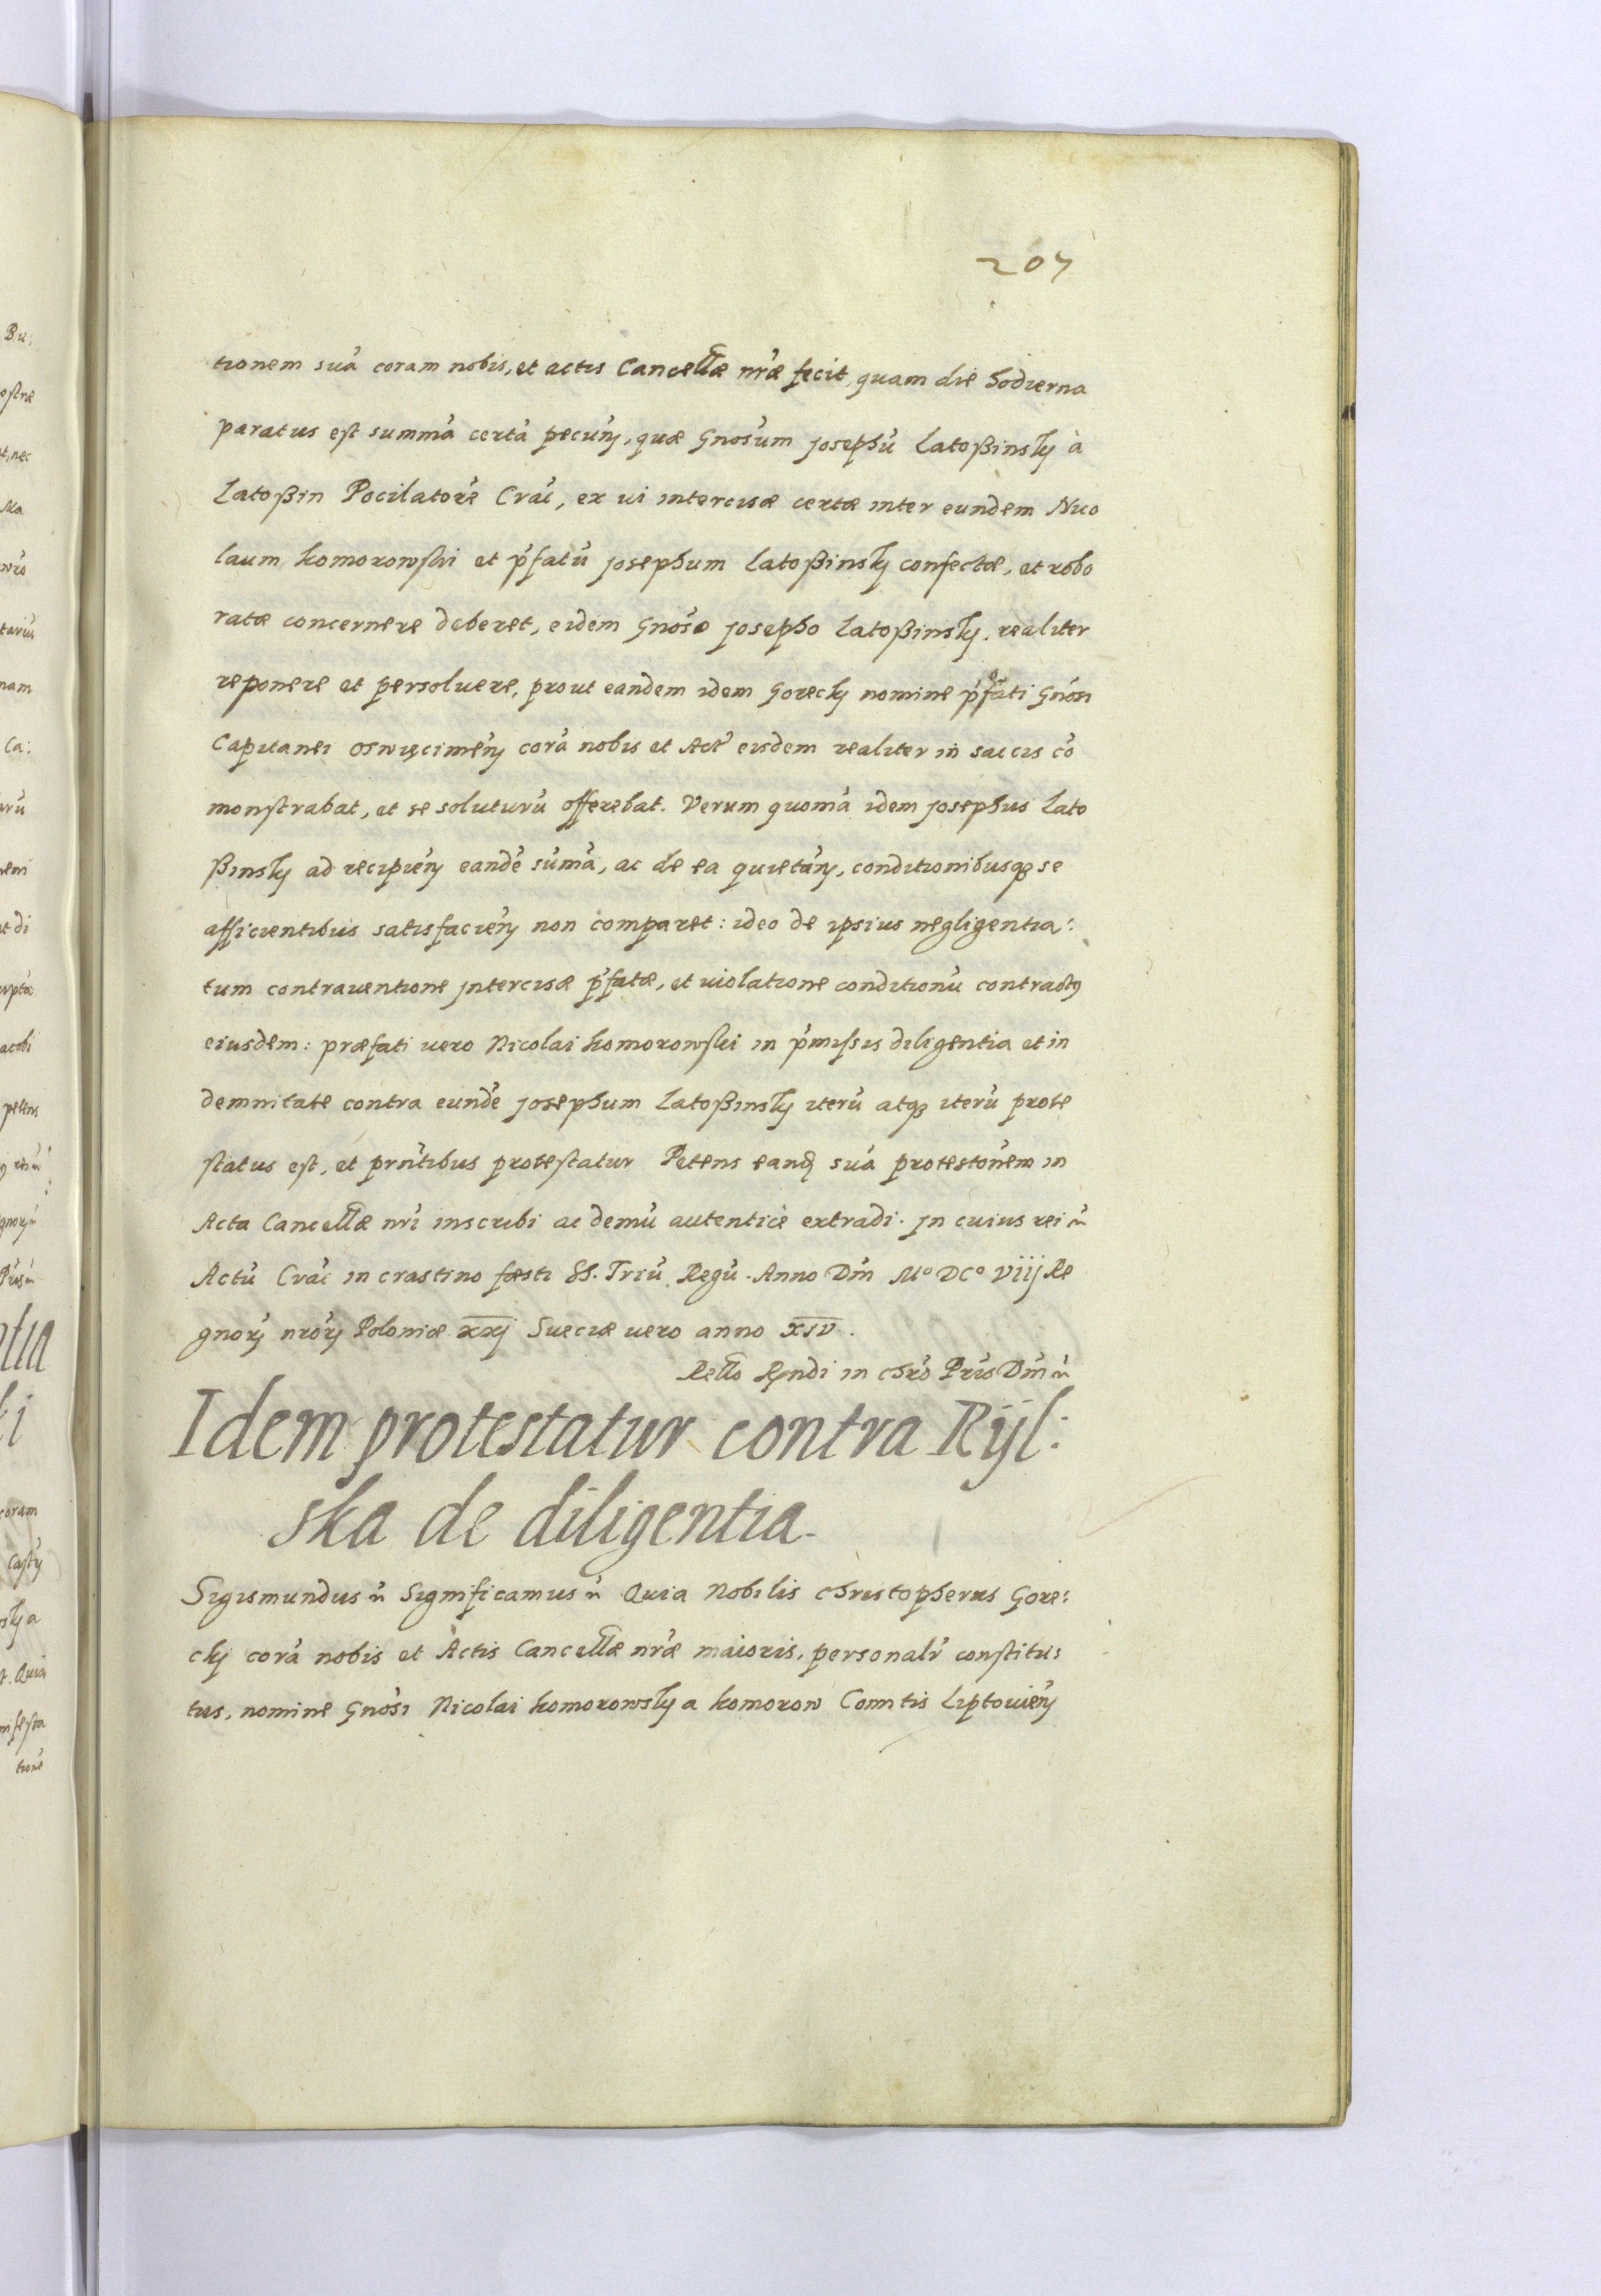 207
tionem suã coram nobis, et actis Cancellæ nrãe fecit, quam die hodierna
paratus est summã certã pecuñ, quæ Gnosum Josephũ Latoßinsky à
Latoßin Pocilatorẽ Crač, ex vi intercisæ certæ inter eundem Nico
laum Komorowski et p̃fatũ Josephum Latoßinsky confectæ, et robo
ratæ concernere deberet, eidem Gnoso Josepho Latoßinsky, realiter
reponere et persoluere, prout eandem idem Gorecky nomine p̃fati Gnosi
Capitanei Oswięcimeñ corã nobis et Act̃ eisdem realiter in saccis cõ
monstrabat, et se soluturũ offerebat. Verum quoniã idem Josephus Lato
ßinsky ad recipieñ eandẽ sũmã, ac de ea quietañ, conditionibusq̃ se
afficientibus satisfacieñ non comparet: ideo de ipsius negligentia:
tum contrauentione Intercisæ p̃fatæ, et uiolatione conditionũ contractus
eiusdem: præfati uero Nicolai Komorowski in p̃missis diligentia et in
demnitate contra eundẽ Josephum Latoßinsky iterũ atq̃ iterũ prote
status est, et prñtibus protestatur Petens eand̃ suã protestõnem in
Acta Cancellæ nrĩ inscribi ac demũ autenticè extradi. In cuius rei ñ
Actũ Crač in crastino fæsti SS. Triũ Regũ. Anno Dñi Mº DCº VIIJ Re
gnorũ nrõrũ Poloniæ XXJ Sueciæ uero anno XJV.
Rello Rñdi in Chrõ Pris Dñi ñ
Idem protestatur contra Rÿl:
ska de diligentia.
Sigismundus ñ Significamus ñ Quia Nobilis Christopherus Gore:
cky corã nobis et Actis Cancellæ nrãe maioris, personalr̃ constitu:
tus, nomine Gnosi Nicolai Komorowsky a Komorow Comitis Liptouieñ